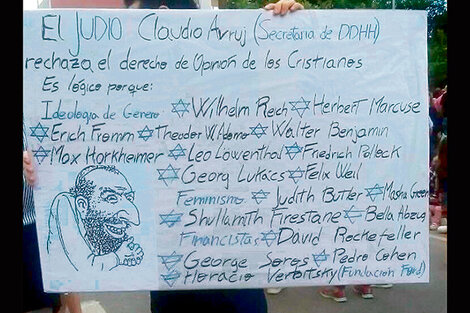 El JUDIO Claudio Avruj (Secretaria de DDHH)
rechaza el derecho de Opinión de los Cristianos
Es lógico porque:
Ideología de Genero ✡Wilhelm Reich ✡Herbert Marcuse
✡Erich Fromm ✡Theodor W. Adorno ✡Walter Benjamin
✡Max Horkheimer ✡Leo Löwenthal ✡Friedrich Pollock
✡Georg Lukács ✡Felix Weil
Feminismo ✡Judith Butler ✡Masha
✡Shullamith Firestone ✡Bela Abzug
Financistas ✡David Rockefeller
✡George Soros ✡Pedro Cohen
✡Horacio Verbitsky (Fundacion Ford)